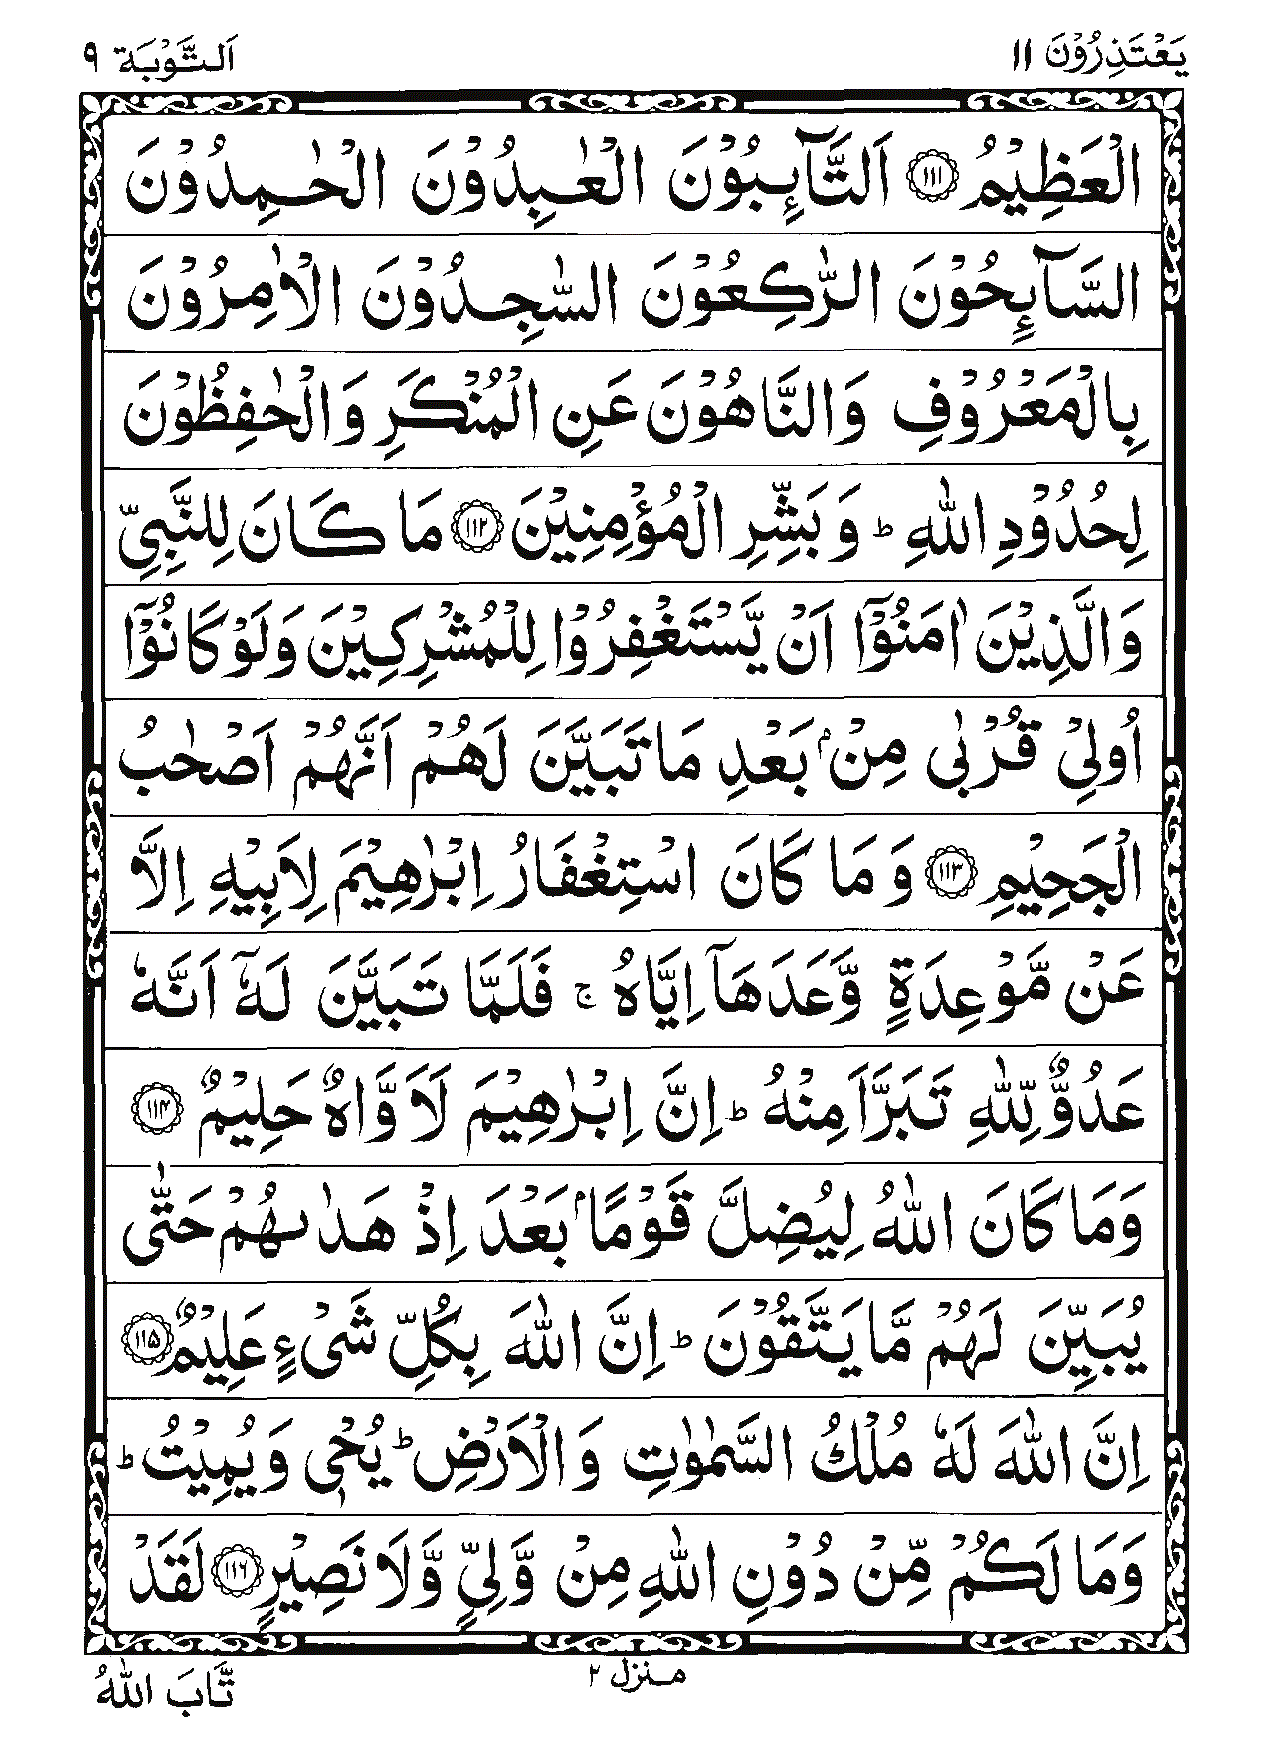 يَعْتَذِرُوْنَ ۱۱
اَلتَّوْبَة ۹
الْعَظِيْمُ ﴿۱۱۱﴾ اَلتَّآىِٕبُوْنَ الْعٰبِدُوْنَ الْحٰمِدُوْنَ
السَّآىِٕحُوْنَ الرّٰكِعُوْنَ السّٰجِدُوْنَ الْاٰمِرُوْنَ
بِالْمَعْرُوْفِ وَالنَّاهُوْنَ عَنِ الْمُنْكَرِ وَالْحٰفِظُوْنَ
لِحُدُوْدِ اللّٰهِ ؕ وَبَشِّرِ الْمُؤْمِنِيْنَ ﴿۱۱۲﴾ مَا كَانَ لِلنَّبِيِّ
وَالَّذِيْنَ اٰمَنُوْۤا اَنْ يَّسْتَغْفِرُوْا لِلْمُشْرِكِيْنَ وَلَوْ كَانُوْۤا
اُولِيْ قُرْبٰى مِنْۢ بَعْدِ مَا تَبَيَّنَ لَهُمْ اَنَّهُمْ اَصْحٰبُ
الْجَحِيْمِ ﴿۱۱۳﴾ وَمَا كَانَ اسْتِغْفَارُ اِبْرٰهِيْمَ لِاَبِيْهِ اِلَّا
عَنْ مَّوْعِدَةٍ وَّعَدَهَاۤ اِيَّاهُ ۚ فَلَمَّا تَبَيَّنَ لَهٗۤ اَنَّهٗ
عَدُوٌّ لِّلّٰهِ تَبَرَّاَ مِنْهُ ؕ اِنَّ اِبْرٰهِيْمَ لَاَوَّاهٌ حَلِيْمٌ ﴿۱۱۴﴾
وَمَا كَانَ اللّٰهُ لِيُضِلَّ قَوْمًۢا بَعْدَ اِذْ هَدٰىهُمْ حَتّٰى
يُبَيِّنَ لَهُمْ مَّا يَتَّقُوْنَ ؕ اِنَّ اللّٰهَ بِكُلِّ شَيْءٍ عَلِيْمٌ ﴿۱۱۵﴾
اِنَّ اللّٰهَ لَهٗ مُلْكُ السَّمٰوٰتِ وَالْاَرْضِ ؕ يُحْيٖ وَيُمِيْتُ ؕ
وَمَا لَكُمْ مِّنْ دُوْنِ اللّٰهِ مِنْ وَّلِيٍّ وَّلَا نَصِيْرٍ ﴿۱۱۶﴾ لَقَدْ
منزل ۲
تَّابَ اللّٰهُ